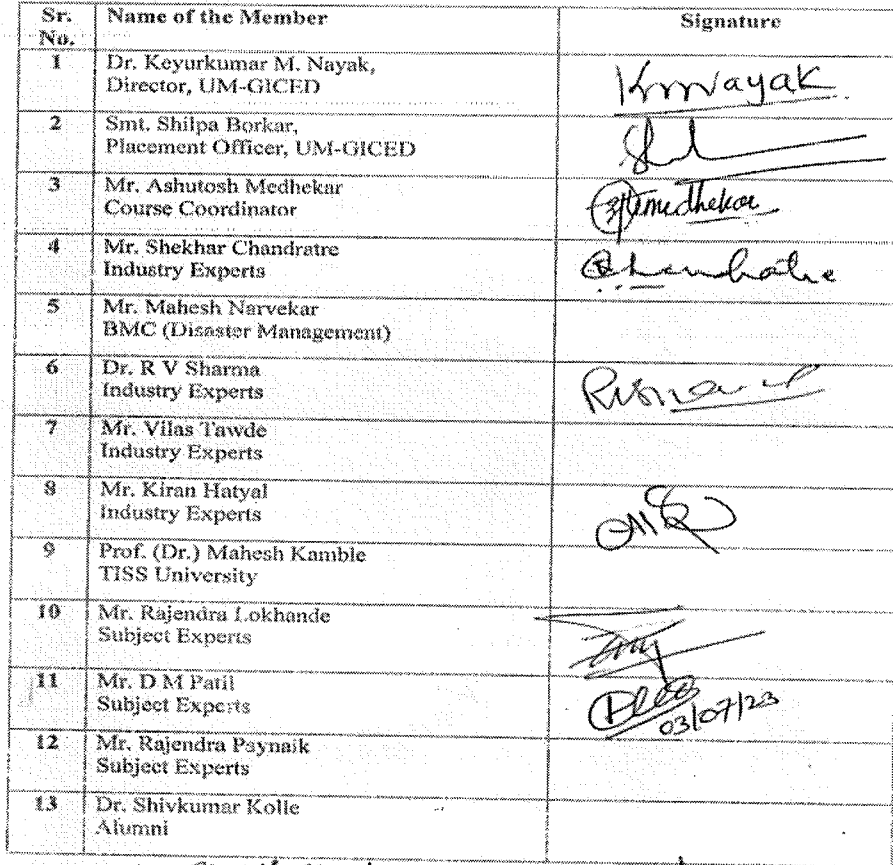 Sr. No.
Name of the Member
Signature
1
Dr. Keyurkumar M. Nayak,
Director, UM-GICED
KMNayak
2
Smt. Shilpa Borkar,
Placement Officer, UM-GICED
3
Mr. Ashutosh Medhekar
Course Coordinator
Medhekar
4
Mr. Shekhar Chandratre
Industry Experts
5
Mr. Mahesh Narvekar
BMC (Disaster Management)
6
Dr. R V Sharma
Industry Experts
7
Mr. Vilas Tawde
Industry Experts
8
Mr. Kiran Hatyal
Industry Experts
9
Prof. (Dr.) Mahesh Kamble
TISS University
10
Mr. Rajendra Lokhande
Subject Experts
11
Mr. D M Patil
Subject Experts
03/07/23
12
Mr. Rajendra Paynaik
Subject Experts
13
Dr. Shivkumar Kolle
Alumni